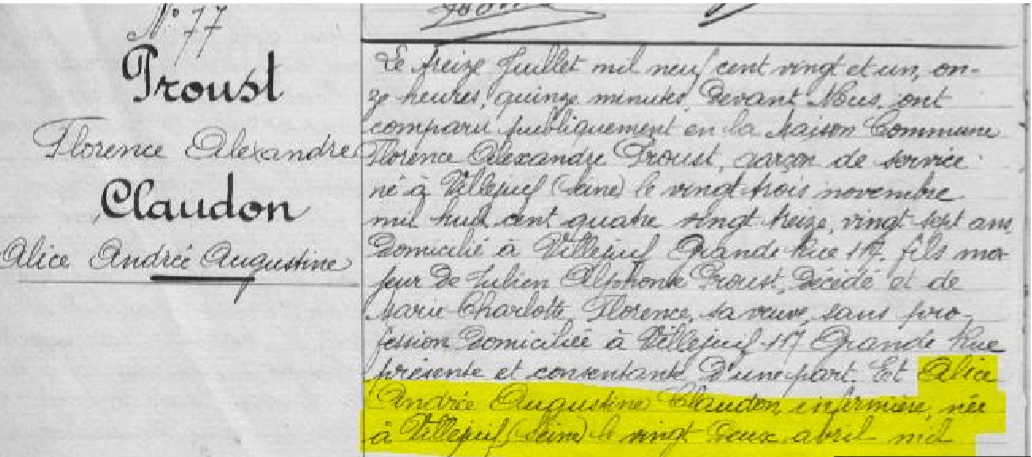 N° 77
Proust
Florence Alexandre
Claudon
Alice Andrée Augustine
Le treize Juillet mil neuf cent vingt et un, on-
ze heures, quinze minutes, Devant Nous, ont
comparu publiquement en la Maison Commune
Florence Alexandre Proust, garçon de service
né à Villejuif (Seine) le vingt trois novembre
mil huit cent quatre vingt treize, vingt sept ans
Domicilié à Villejuif Grande Rue 117. fils ma-
jeur de Julien Alphonse Proust, Décédé et de
Marie Charlotte Florence, sa veuve, sans pro-
fession Domiciliée à Villejuif 117 Grande Rue
présente et consentante D'une part. Et Alice
Andrée Augustine Claudon, infirmière, née
à Villejuif (Seine) le vingt Deux abril mil